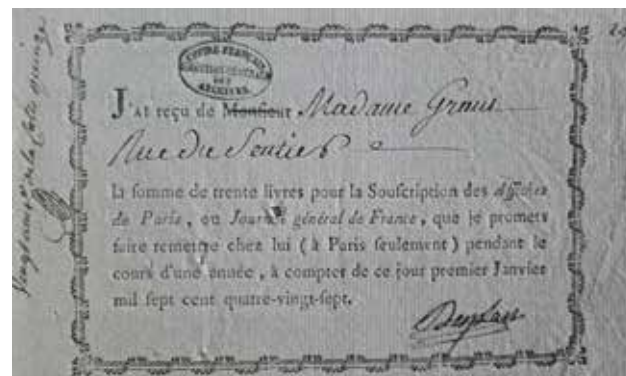 EMPIRE FRANÇAIS
DES
ARCHIVES
J'AI reçu de Monsieur Madame
Rue Du Sentier
la somme de trente livres pour la Souscription des Affiches
de Paris, ou Journal général de France, que je promets
faire remettre chez lui (à Paris seulement) pendant le
cours d'une année, à compter de ce jour premier Janvier
mil sept cent quatre-vingt-sept.